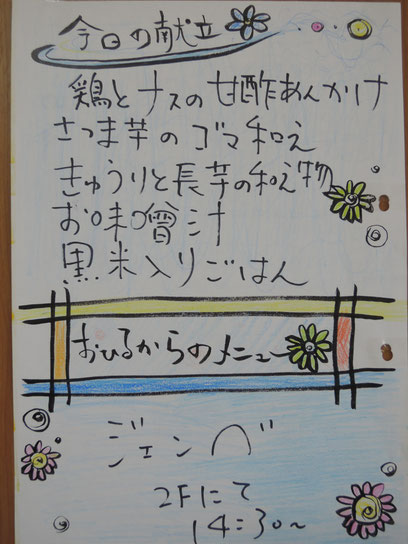 今日の献立
鶏とナスの甘酢あんかけ
さつま芋のゴマ和え
きゅうりと長芋の和え物
お味噌汁
黒米入りごはん
おひるからのメニュー
ジェンベ
2Fにて
14:30~